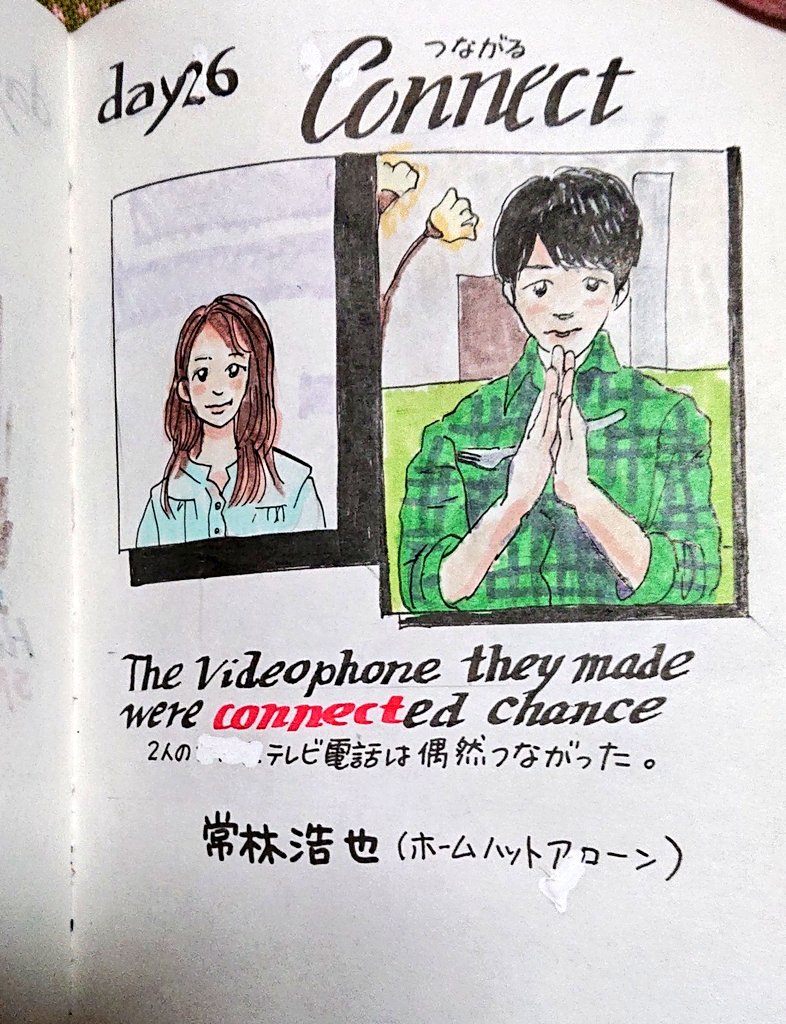 day26
つながる
Connect
The Videophone they made
were connected chance
2人の テレビ電話は偶然つながった。
常林浩也(ホームハットアローン)